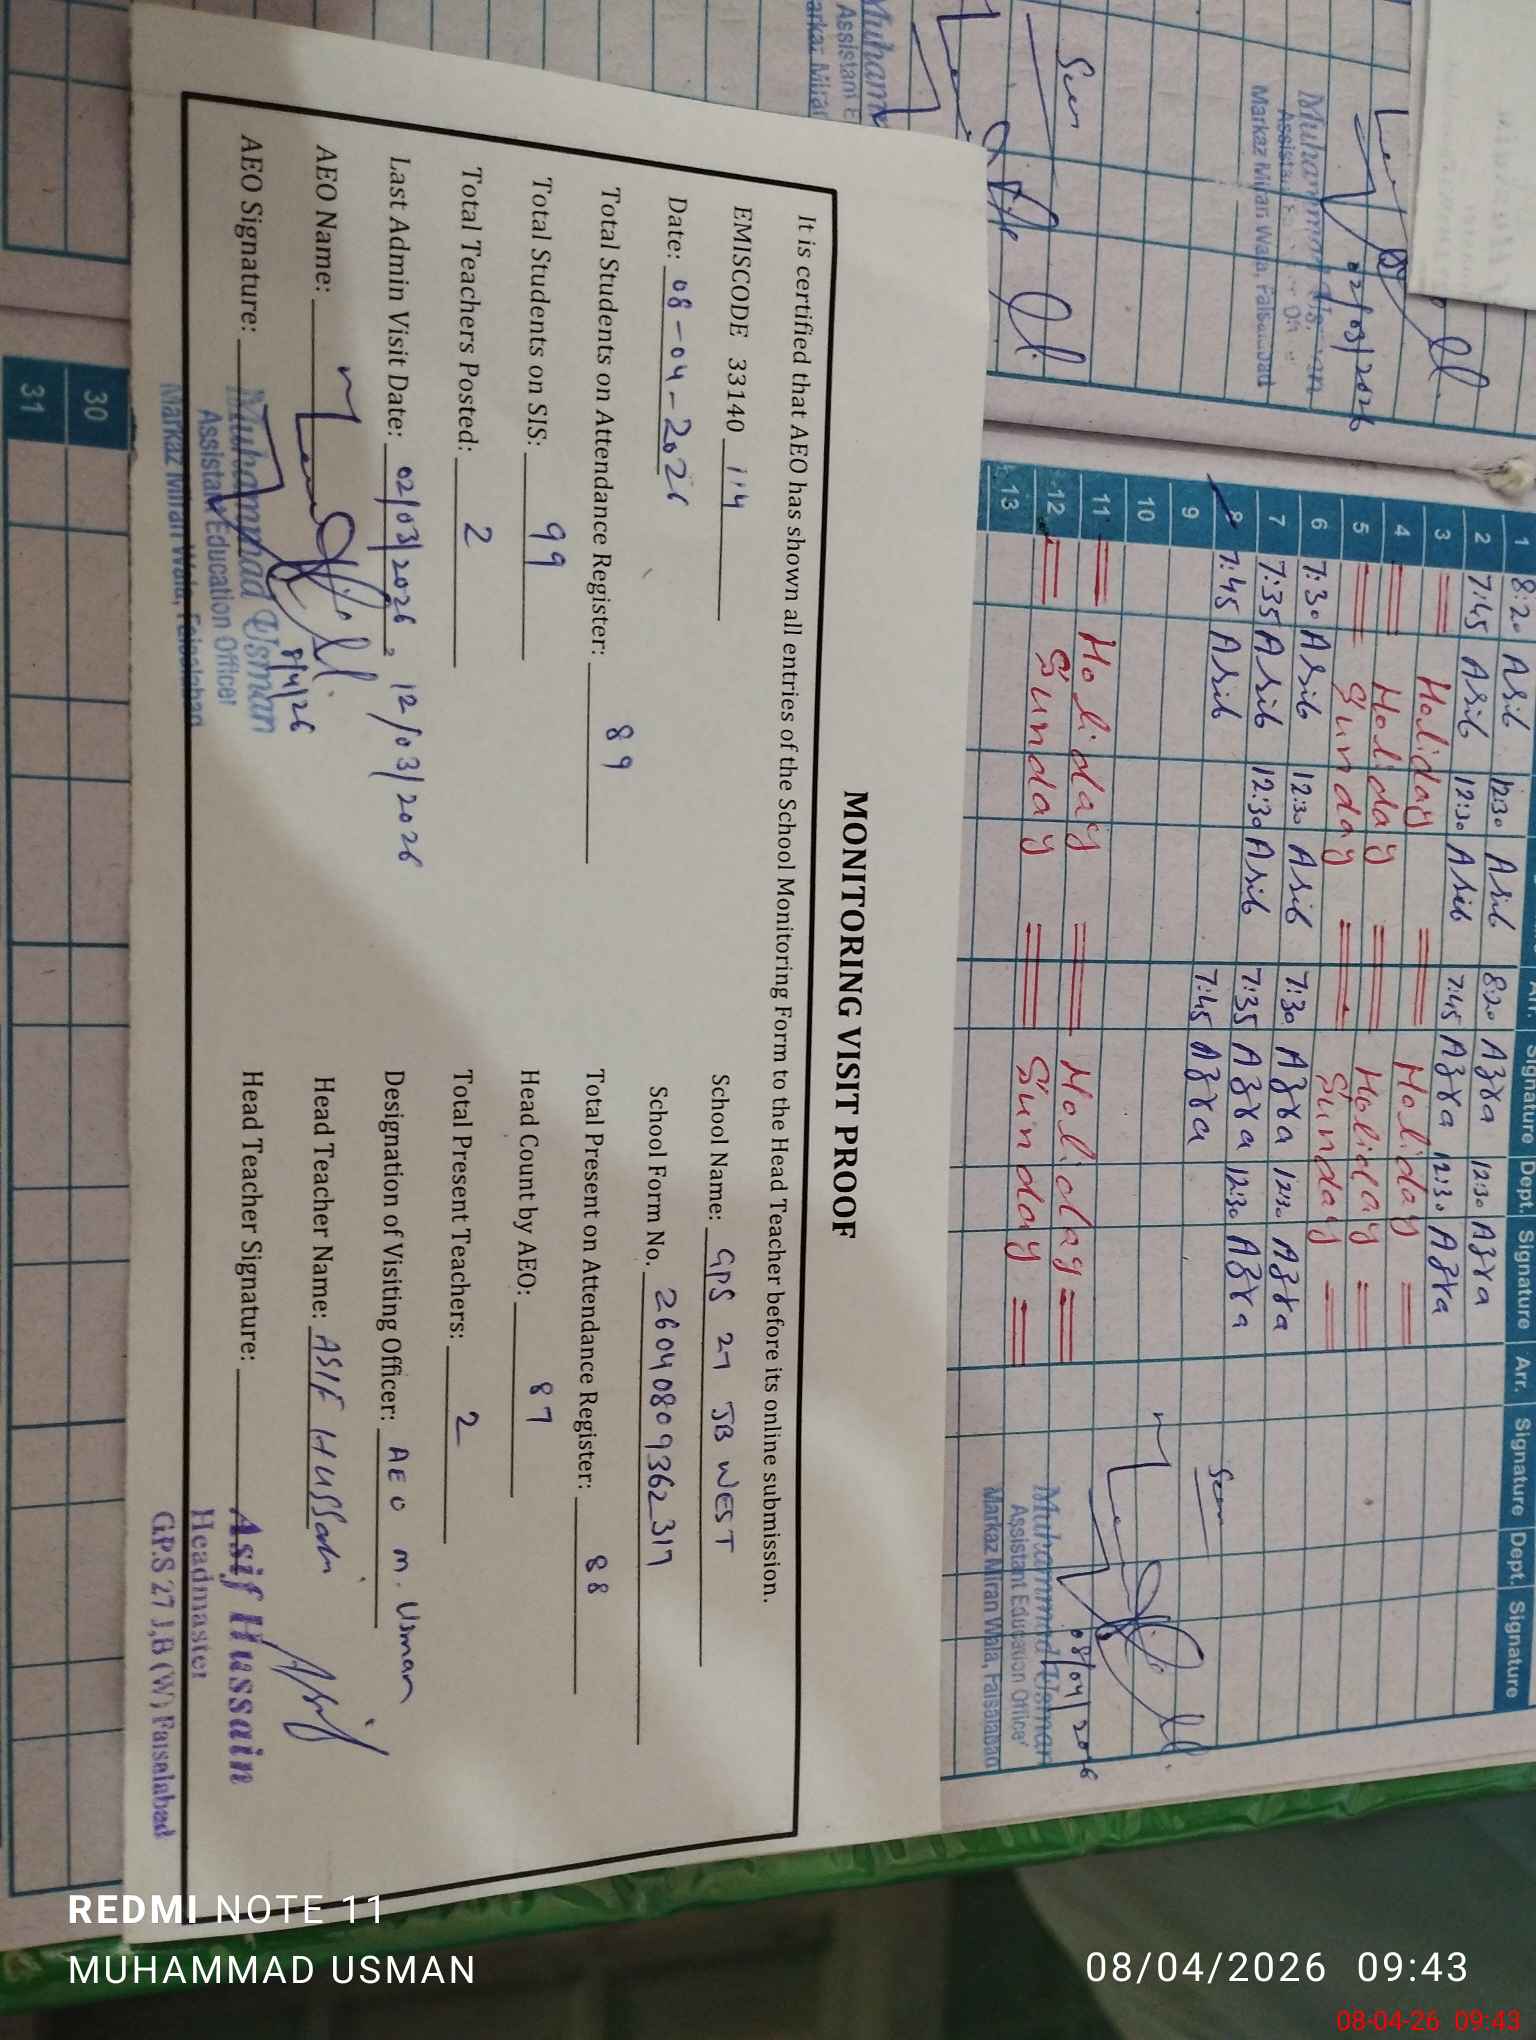 MONITORING VISIT PROOF
It is certified that AEO has shown all entries of the School Monitoring Form to the Head Teacher before its online submission.
EMISCODE 33140 114
School Name: GPS 27 JB WEST
Date: 08-04-2026
School Form No. 26040809362317
Total Students on Attendance Register: 89
Total Present on Attendance Register: 88
Total Students on SIS: 99
Head Count by AEO: 87
Total Teachers Posted: 2
Total Present Teachers: 2
Last Admin Visit Date: 02/03/2026, 12/03/2026
Designation of Visiting Officer: AEO M. Usman
AEO Name:
Head Teacher Name: ASIF HUSSain
AEO Signature:
8/4/26
Head Teacher Signature:
Muhammad Usman
Assistant Education Officer
Markaz Miran Wala, Faisalabad
Asif Hussain
Headmaster
G.P.S 27 J,B (W) Faisalabad
Signature Dept. Signature Arr. Signature Dept. Signature
1 8:20 Asib 12:30 Asib 8:20 Azra 12:30 Azra
2 7:45 Asib 12:30 Asib 7:45 Azra 12:30 Azra
3 Holiday Holiday
4 Holiday Holiday
5 Sunday Sunday
6 7:30 Asib 12:30 Asib 7:30 Azra 12:30 Azra
7 7:35 Asib 12:30 Asib 7:35 Azra 12:30 Azra
8 7:45 Asib 7:45 Azra
9
10
11 Holiday Holiday
12 Sunday Sunday
13
Seen
08/04/2026
Muhammad Usman
Assistant Education Officer
Markaz Miran Wala, Faisalabad
30
31
Seen
02/03/2026
Markaz Miran Wala, Faisalabad
REDMI NOTE 11
MUHAMMAD USMAN
08/04/2026 09:43
08-04-26 09:43